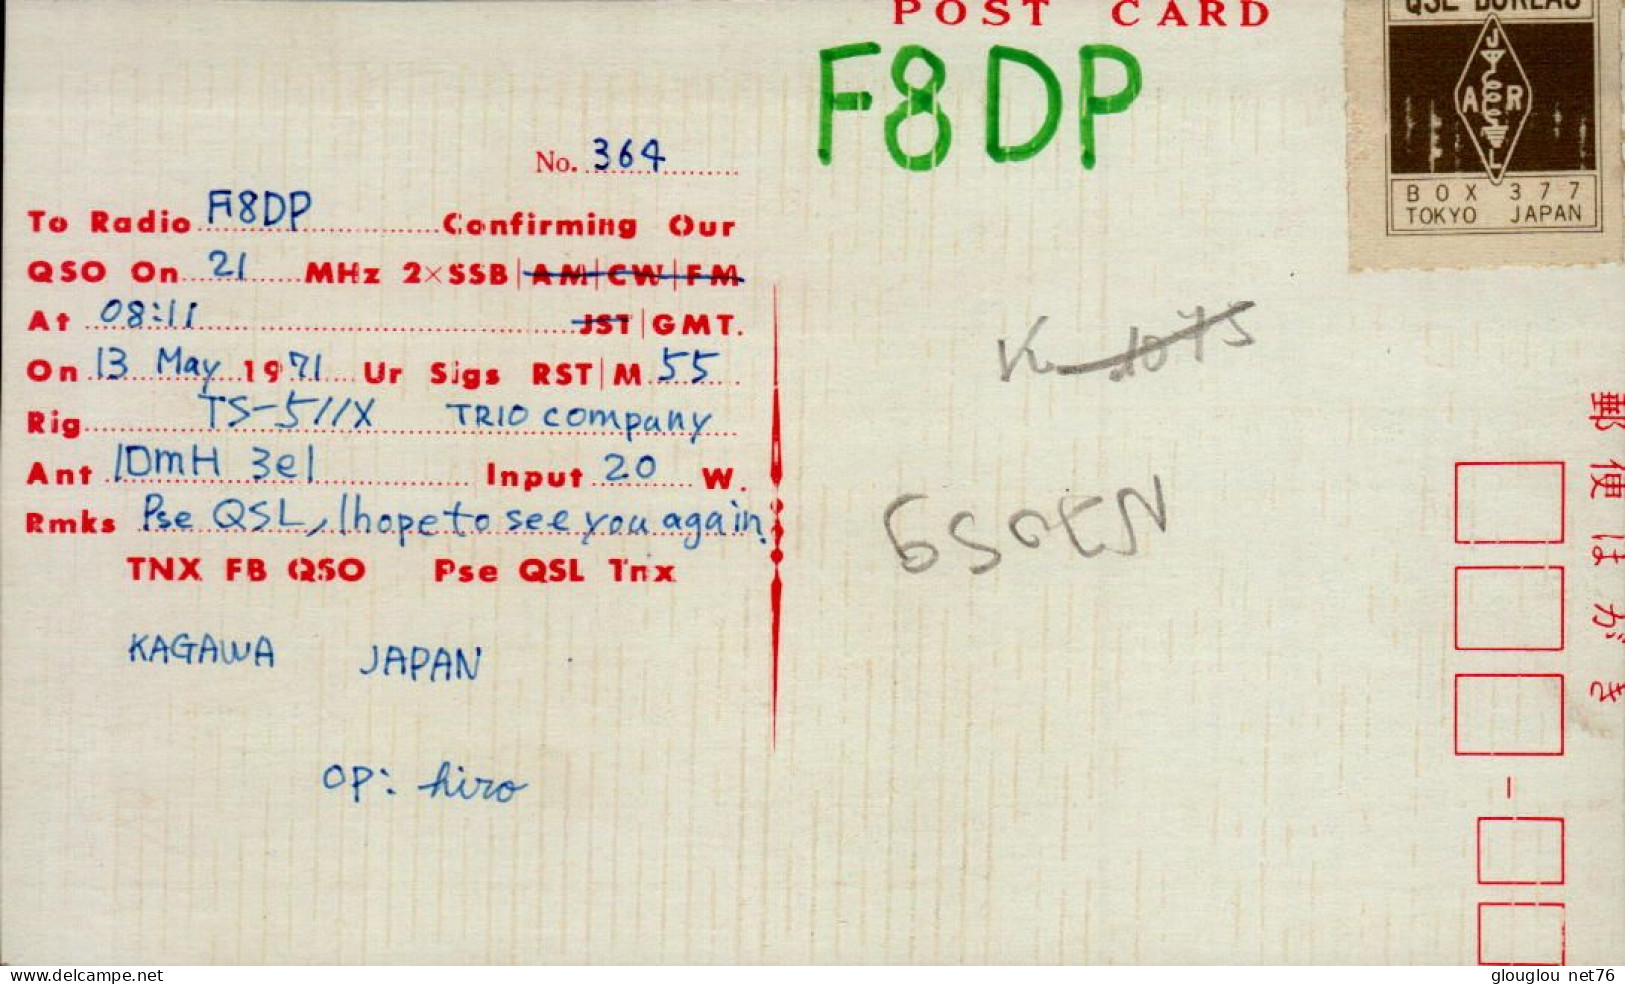 POST CARD
QSL BUREAU
J
A R
L
BOX 377
TOKYO JAPAN
F8DP
No. 364
To Radio F8DP Confirming Our
QSO On 21 MHz 2×SSB|AM|CW|FM
At 08:11 JST|GMT.
On 13 May 1971 Ur Sigs RST|M 55
Rig TS-511X TRIO company
Ant 10mH 3el Input 20 W.
Rmks Pse QSL, I hope to see you again.
TNX FB QSO Pse QSL Tnx
KAGAWA JAPAN
OP: hiro
郵便はがき
delcampe.net
glouglou net76